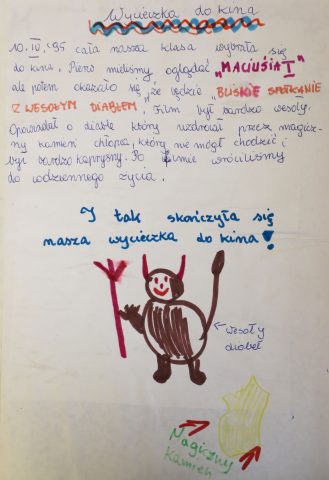 Wycieczka do kina
10.IV.'95 cała nasza klasa wybrała się
do kina. Pierw mieliśmy oglądać „MACIUSIA I"
ale potem okazało się, że będzie „BLISKIE SPOTKANIE
Z WESOŁYM DIABŁEM". Film był bardzo wesoły.
Opowiadał o diable który uzdrowił przez magicz-
ny kamień chłopca, który nie mógł chodzić i
był bardzo kapryśny. Po filmie wróciliśmy
do codziennego życia.
I tak skończyła się
nasza wycieczka do kina!
wesoły
diabeł
Magiczny
kamień